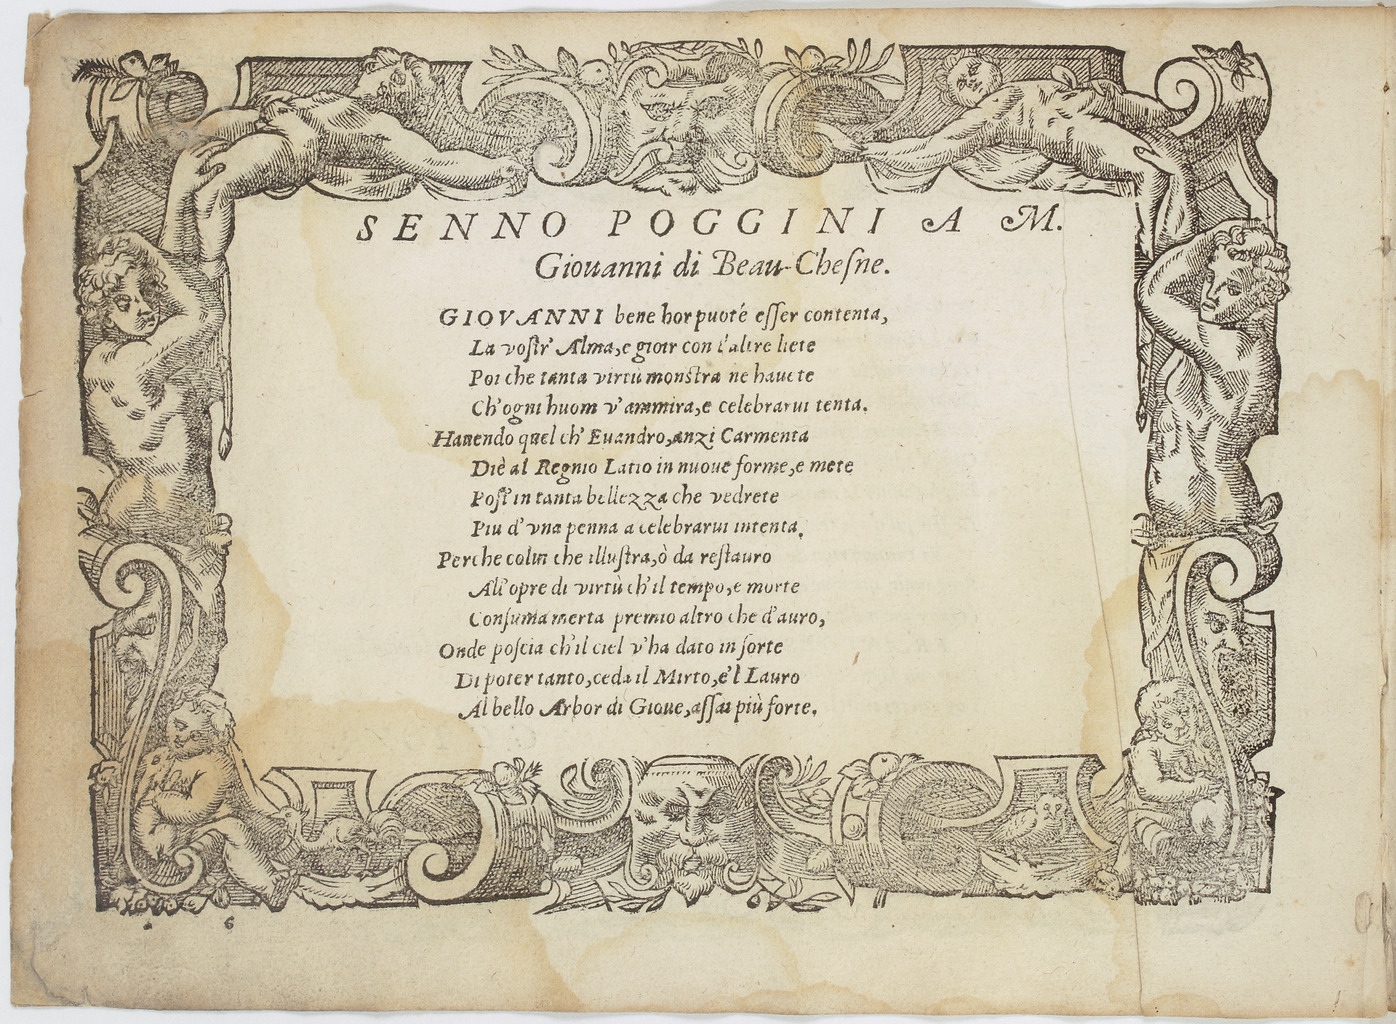 SENNO POGGINI A M.
Giouanni di Beau-Cheſne.
GIOVANNI bene hor puot'è eſſer contenta,
La voſtr' Alma, e gioir con l'altre liete
Poi che tanta virtù monſtra ne hauete
Ch'ogni huom v'ammira, e celebrarui tenta.
Hauendo quel ch' Euandro, anzi Carmenta
Diè al Regnio Latio in nuoue forme, e mete
Poſt' in tanta bellezza che vedrete
Piu d'vna penna a celebrarui intenta.
Perche colui che illuſtra, ò da reſtauro
All'opre di virtù ch'il tempo, e morte
Conſuma merta premio altro che d'auro,
Onde poſcia ch'il ciel v'ha dato in ſorte
Di poter tanto, ceda il Mirto, e'l Lauro
Al bello Arbor di Gioue, aſſai più forte.